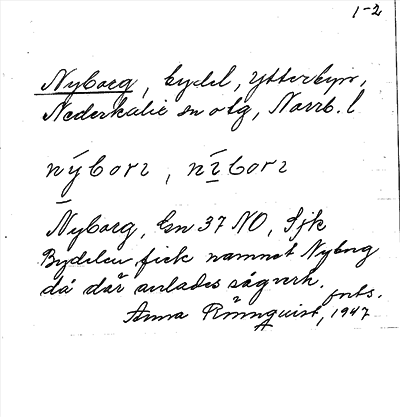 1-2
Nyborg, bydel, Ytterbyn,
Nederkalix sn o tg, Norrb. l
nýborz, nī̱borz
Nyborg, En 37 NO, Sjk
Bydelen fick namnet Nyborg
då där anlades sågverk.
forts.
Anna Rönnquist, 1947